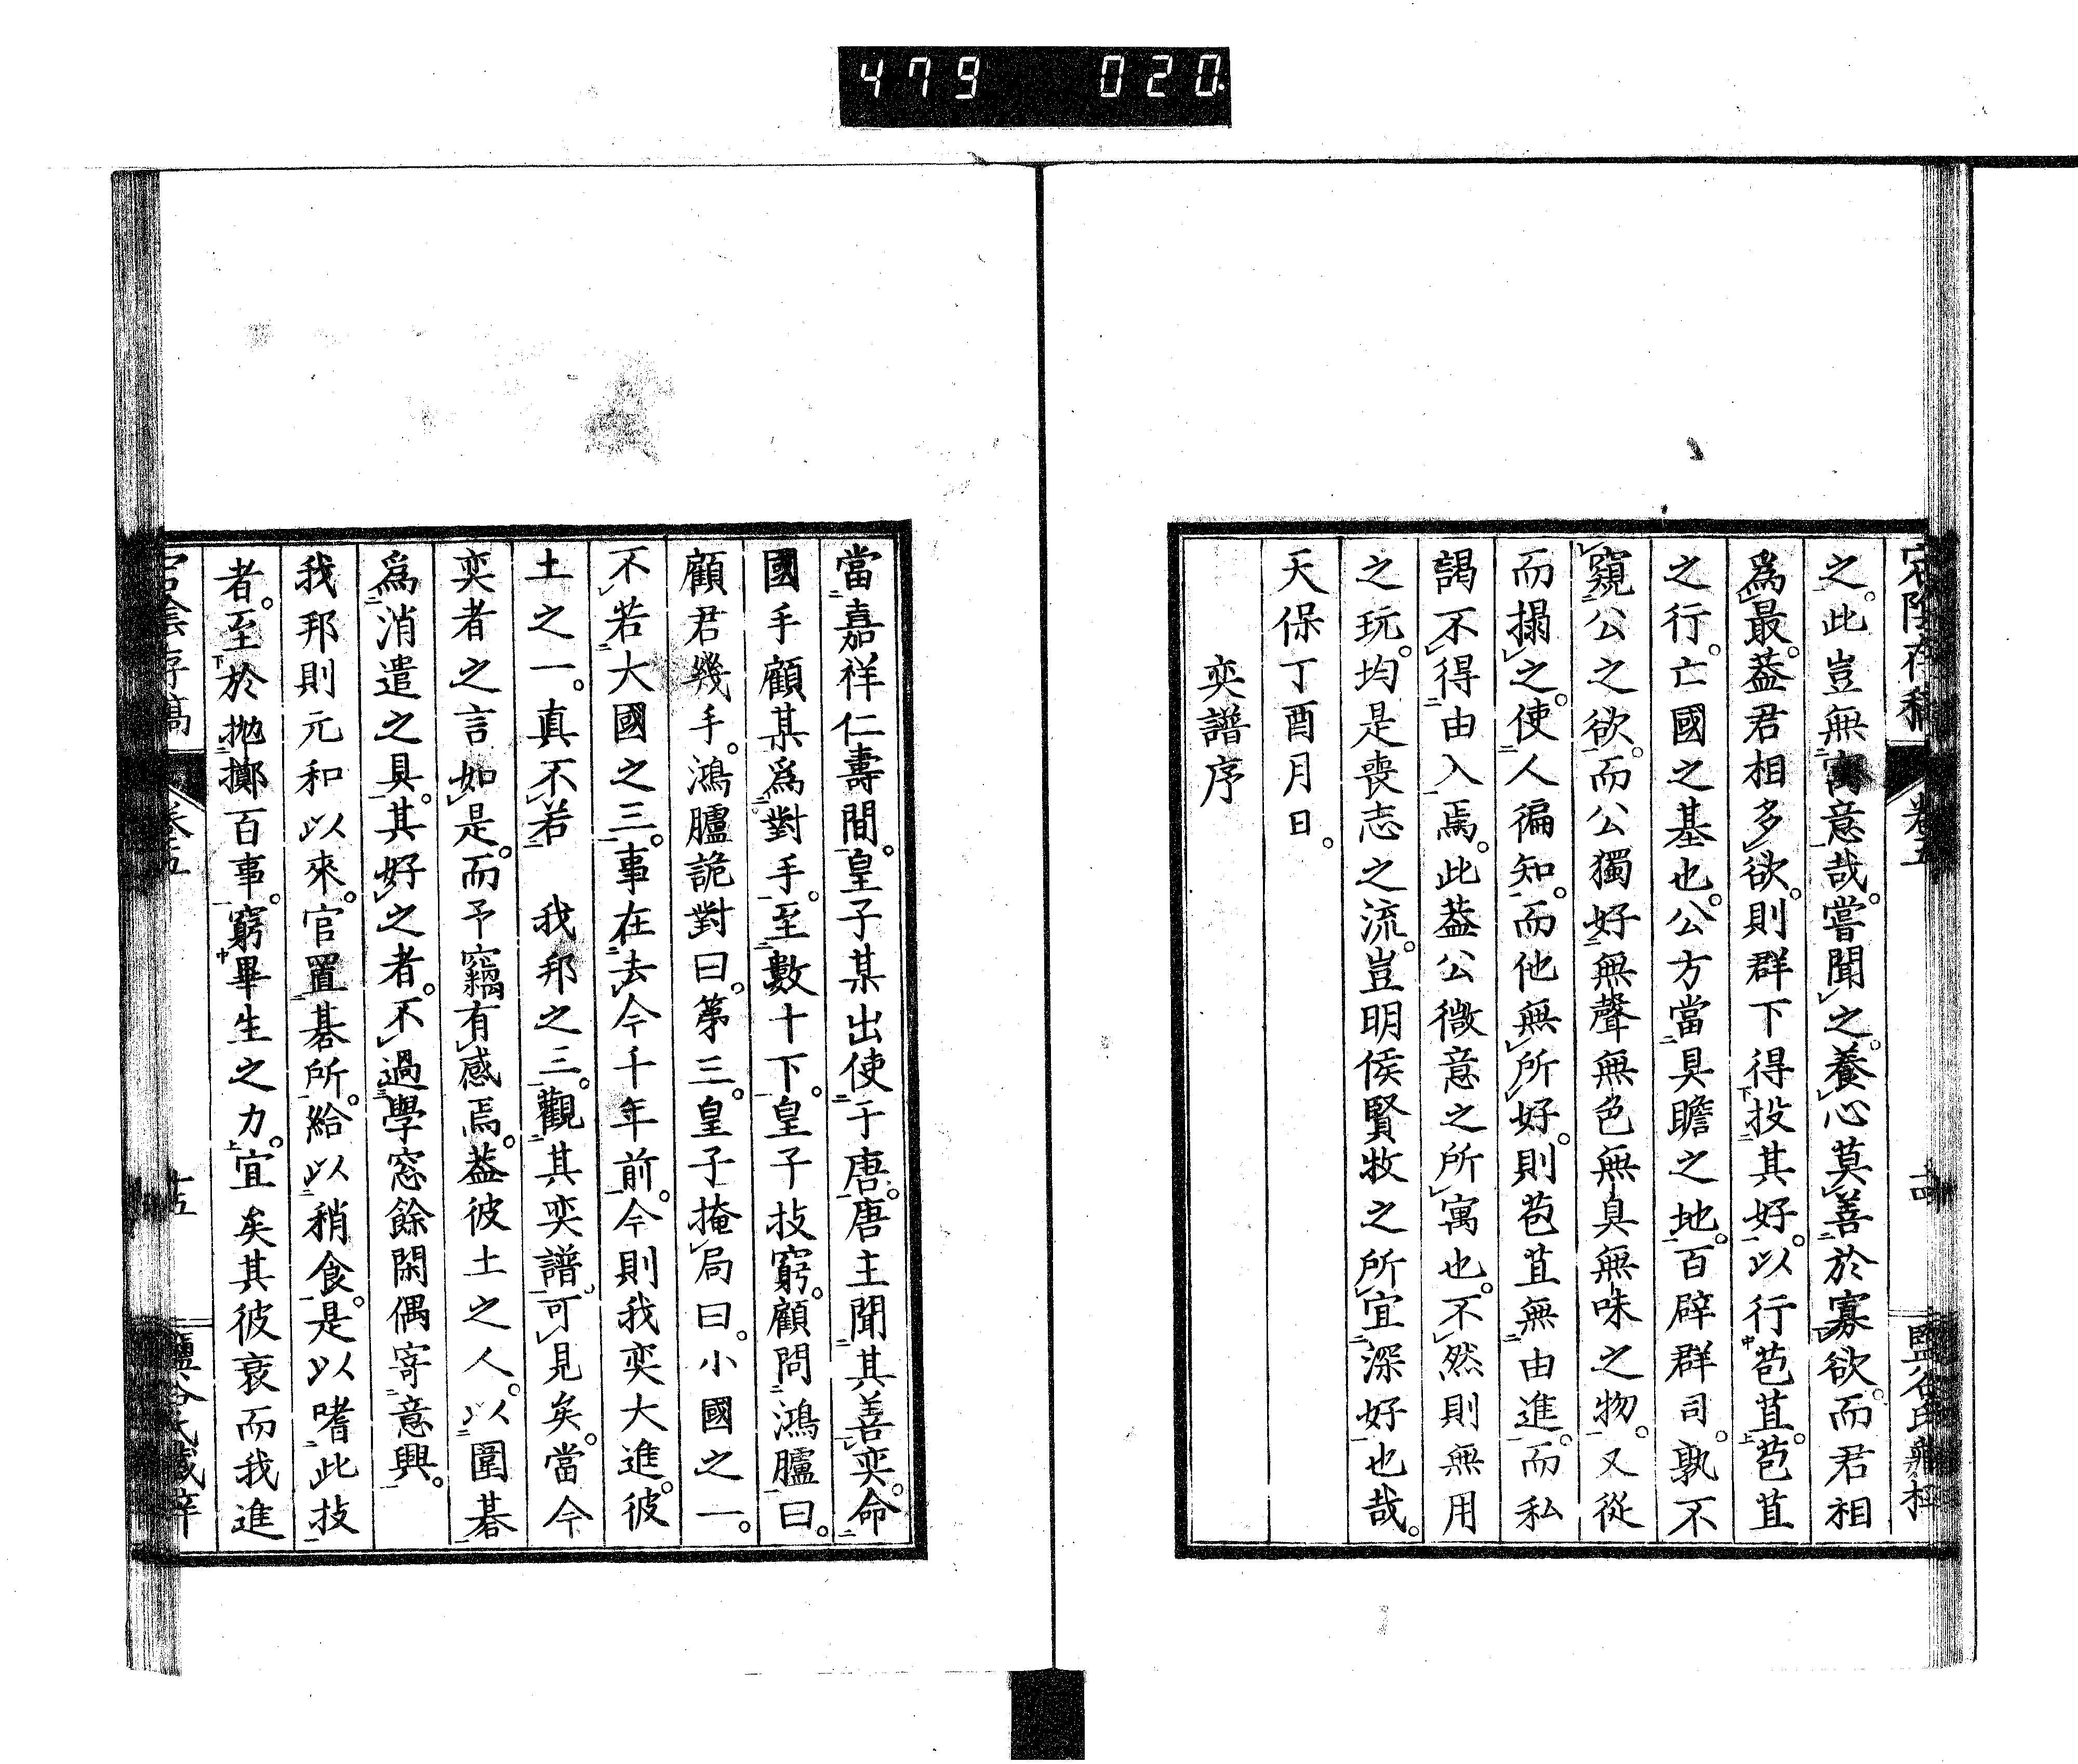 479 020
宕陰存稿 卷五 十四
之。此豈無寓意哉。嘗聞之。養心莫善於寡欲。而君相
爲最。葢君相多欲。則群下得投其好。以行苞苴。苞苴
之行。亡國之基也。公方當具瞻之地。百辟群司。孰不
窺公之欲。而公獨好無聲無色無臭無味之物。又從
而搨之。使人徧知。而他無所好。則苞苴無由進。而私
謁不得由入焉。此葢公微意之所寓也。不然則無用
之玩。均是喪志之流。豈明侯賢牧之所宜深好也哉。
天保丁酉月日。
奕譜序
當嘉祥仁壽間。皇子某出使于唐。唐主聞其善奕。命
國手顧某爲對手。至數十下。皇子技窮。顧問鴻臚曰。
顧君幾手。鴻臚詭對曰。第三。皇子掩局曰。小國之一。
不若大國之三。事在去今千年前。今則我奕大進。彼
土之一。真不若 我邦之三。觀其奕譜。可見矣。當今
奕者之言如是。而予竊有感焉。葢彼土之人。以圍碁
爲消遣之具。其好之者。不過學窓餘閑偶寄意興。
我邦則元和以來。官置碁所。給以稍食。是以嗜此技
者。至於抛擲百事。窮畢生之力。宜矣其彼衰而我進
宕陰存稿 卷五 十五 鹽谷氏藏梓